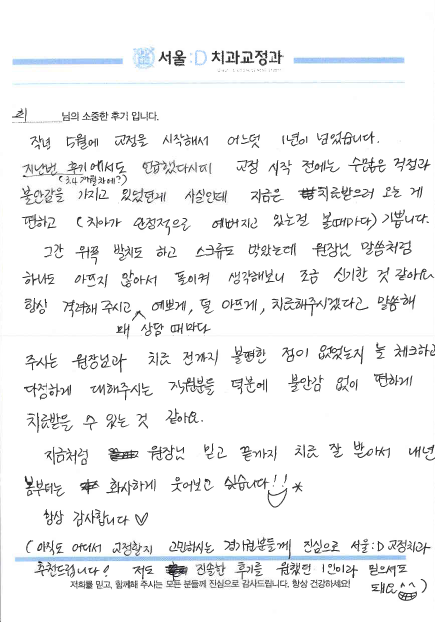 서울:D 치과교정과
최 님의 소중한 후기 입니다.
작년 5월에 교정을 시작해서 어느덧 1년이 넘었습니다.
지난번 후기에서도 언급했다시피 교정 시작 전에는 수많은 걱정과
(3,4개월차에?)
불안감을 가지고 있었던게 사실인데 지금은 치료받으러 오는 게
편하고 (치아가 안정적으로 예뻐지고 있는걸 볼때마다) 기쁩니다.
그간 위쪽 발치도 하고 스크류도 박았는데 원장님 말씀처럼
하나도 아프지 않아서 돌이켜 생각해보니 조금 신기한 것 같아요.
항상 격려해 주시고 예쁘게, 덜 아프게, 치료해주시겠다고 말씀해
매 상담 때마다
주시는 원장님과 치료 전까지 불편한 점이 없었는지 늘 체크하고
다정하게 대해주시는 직원분들 덕분에 불안감 없이 편하게
치료받을 수 있는 것 같아요.
지금처럼 원장님 믿고 끝까지 치료 잘 받아서 내년
봄부터는 화사하게 웃어보고 싶습니다!!
항상 감사합니다♡
(아직도 어디서 교정할지 고민하시는 분들께 진심으로 서울:D 교정치과
추천드립니다! 저도 진솔한 후기를 원했던 1인이라 믿으셔도
돼요^^)
저희를 믿고, 함께해 주시는 모든 분들께 진심으로 감사드립니다. 항상 건강하세요!